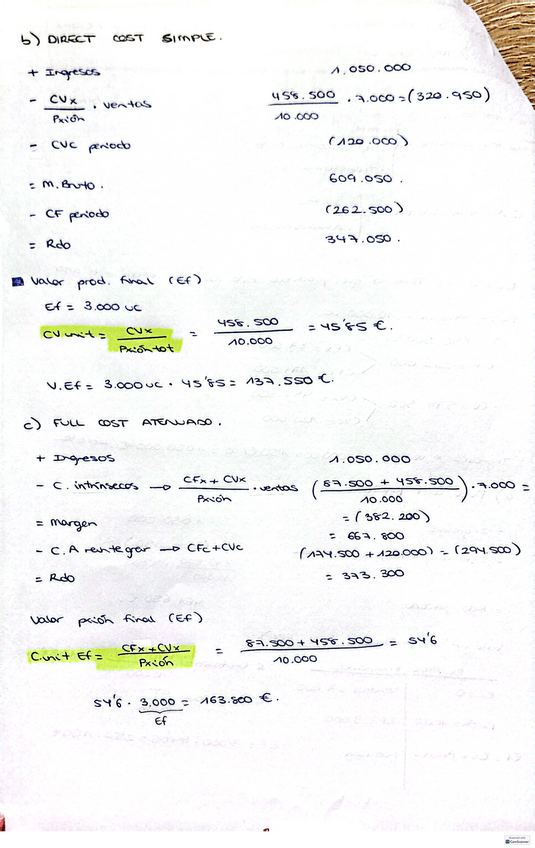 b) DIRECT COST SIMPLE.
+ Ingresos 1.050.000
- CVx / Pxión . ventas 458.500 / 10.000 . 7.000 = (320.950)
- CVC periodo (120.000)
= M. Bruto. 609.050.
- CF periodo (262.500)
= Rdo 347.050.
Valor prod. final (Ef)
Ef = 3.000 uc
CV.unit = CVx / Pxión tot = 458.500 / 10.000 = 45'85 €.
V.Ef = 3.000 uc · 45'85 = 137.550 €.
c) FULL COST ATENUADO.
+ Ingresos 1.050.000
- C. intrínsecos → CFx + CVx / Pxión . ventas (87.500 + 458.500 / 10.000) . 7.000 =
= (382.200)
= margen = 667.800
- C. A reintegrar → CFc + CVc (174.500 + 120.000) = (294.500)
= Rdo = 373.300
Valor pxión final (Ef)
C.unit Ef = CFx + CVx / Pxión = 87.500 + 458.500 / 10.000 = 54'6
54'6 · 3.000 = 163.800 €.
Ef
Scanned with
CamScanner